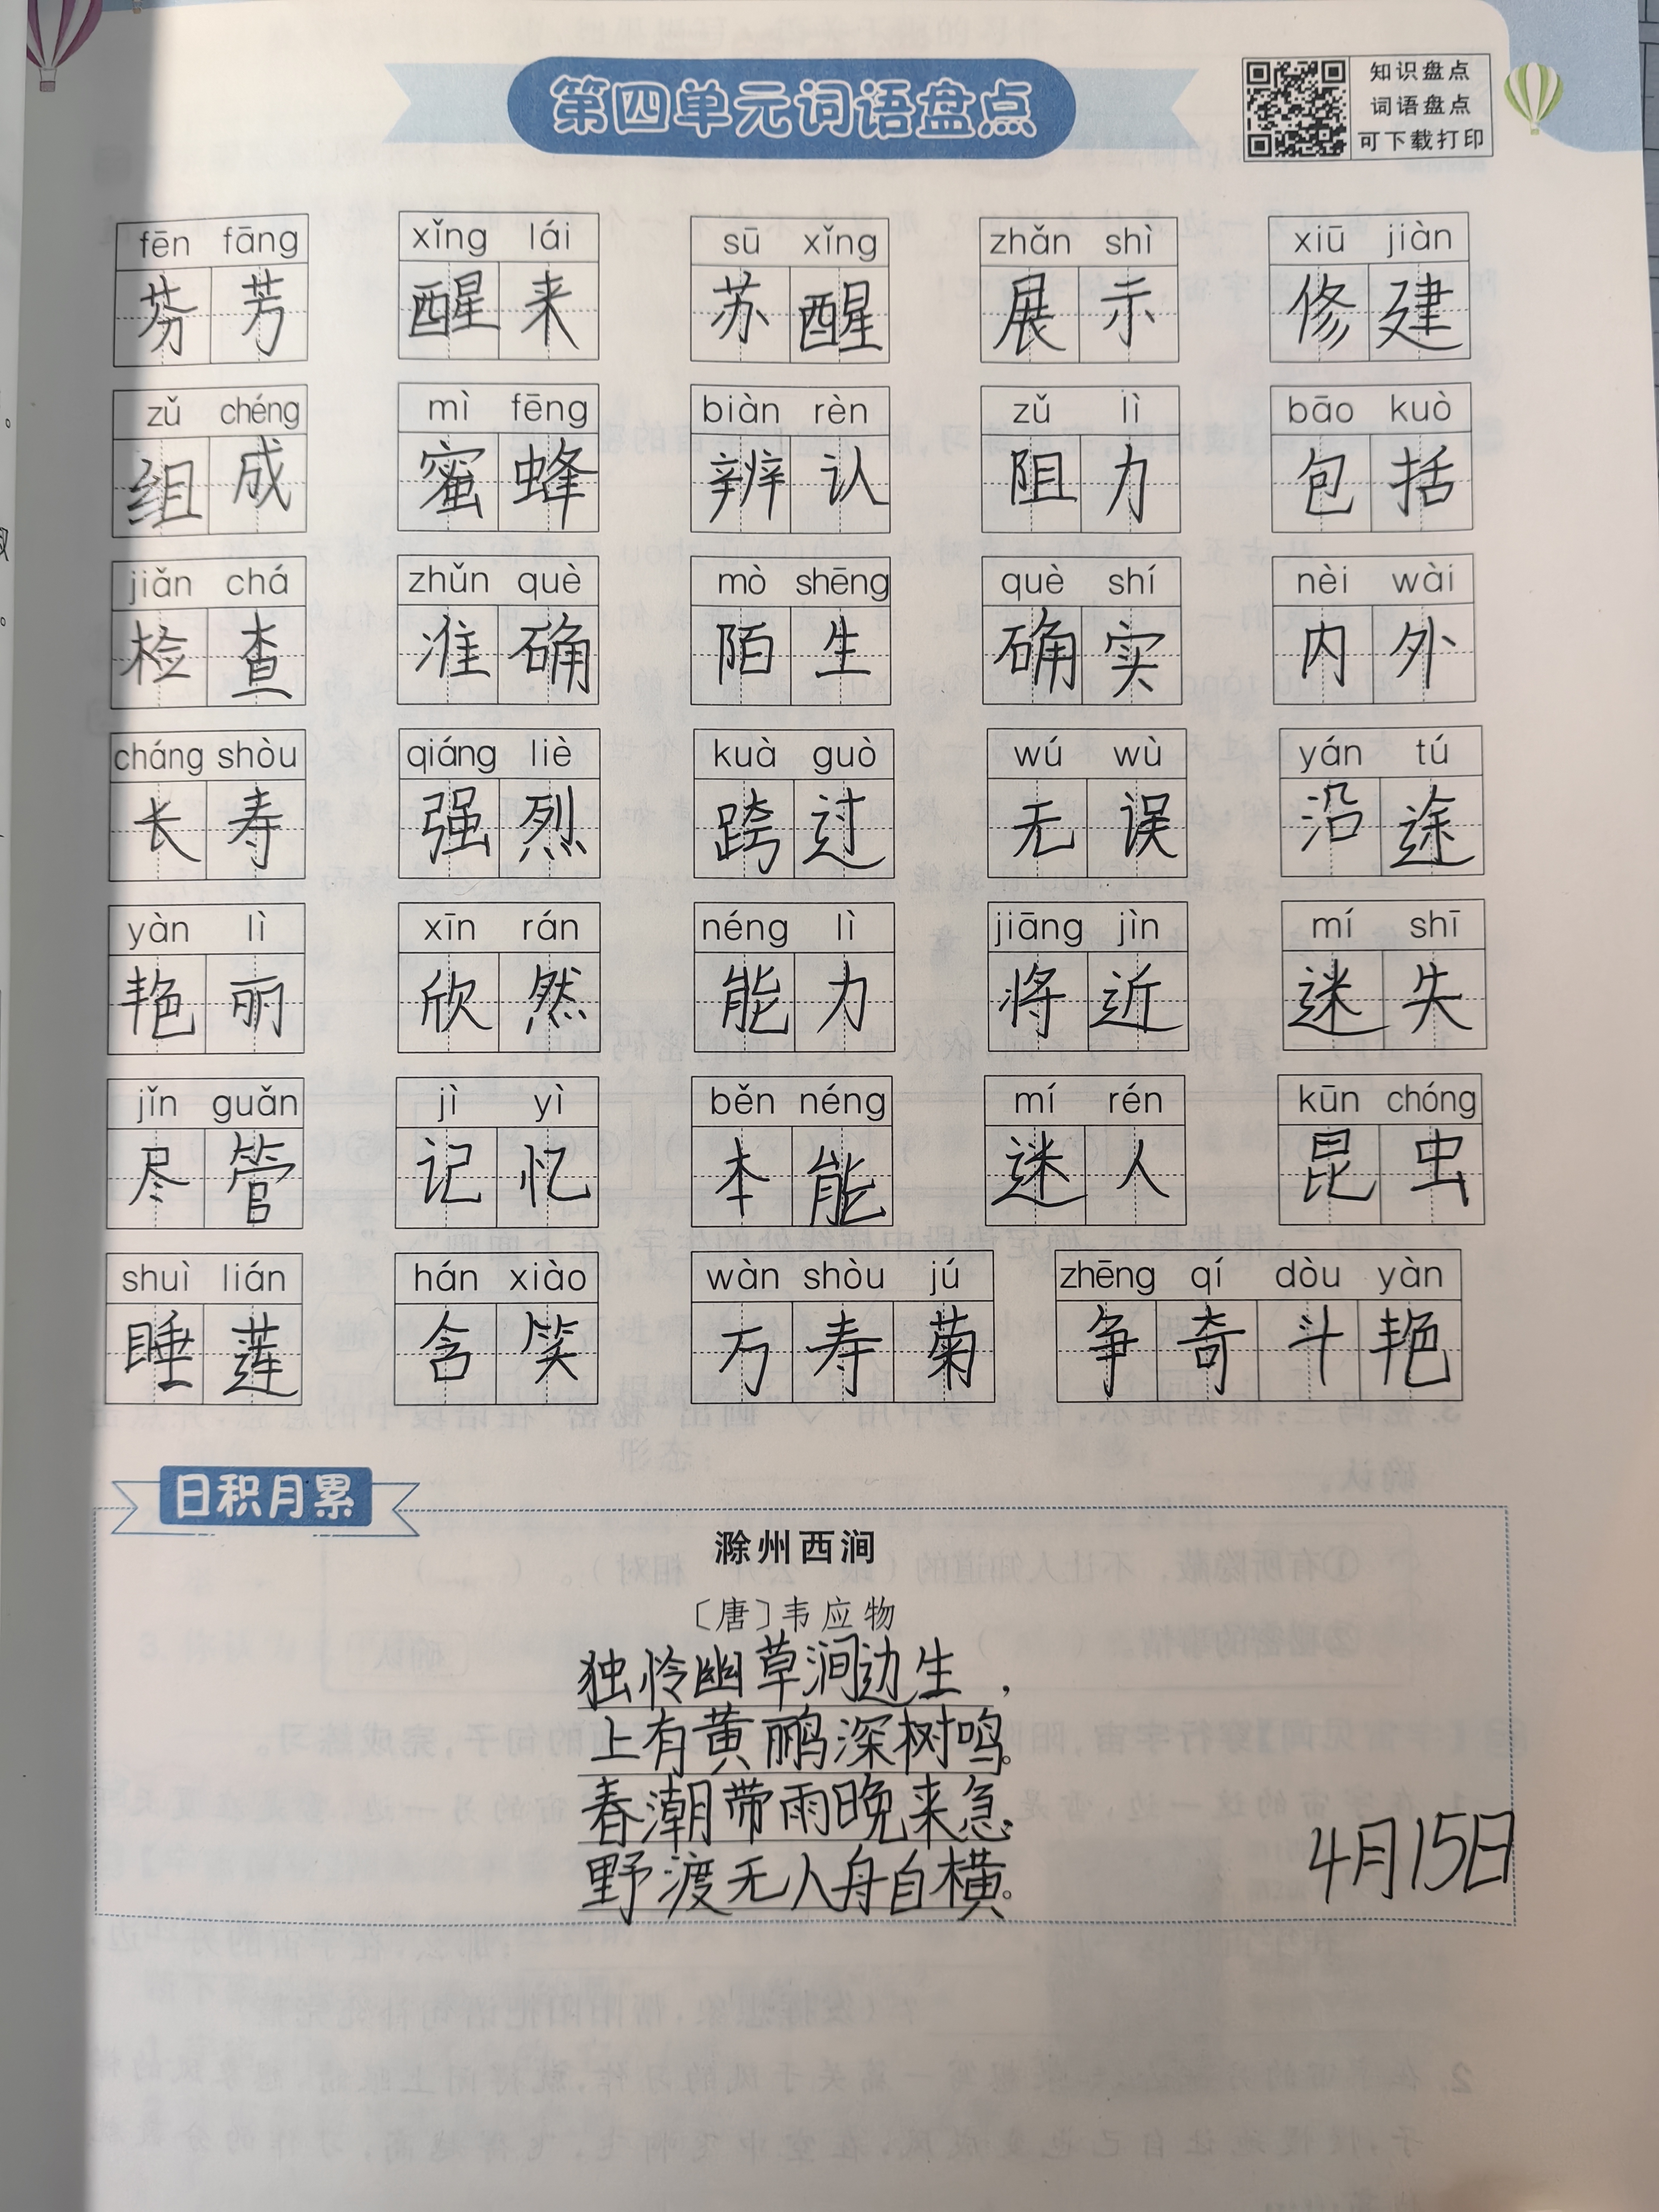 第四单元词语盘点
知识盘点
词语盘点
可下载打印
fēn fāng xǐng lái sū xǐng zhǎn shì xiū jiàn
芬芳 醒来 苏醒 展示 修建
zǔ chéng mì fēng biàn rèn zǔ lì bāo kuò
组成 蜜蜂 辨认 阻力 包括
jiǎn chá zhǔn què mò shēng què shí nèi wài
检查 准确 陌生 确实 内外
cháng shòu qiáng liè kuà guò wú wù yán tú
长寿 强烈 跨过 无误 沿途
yàn lì xīn rán néng lì jiāng jìn mí shī
艳丽 欣然 能力 将近 迷失
jǐn guǎn jì yì běn néng mí rén kūn chóng
尽管 记忆 本能 迷人 昆虫
shuì lián hán xiào wàn shòu jú zhēng qí dòu yàn
睡莲 含笑 万寿菊 争奇斗艳
日积月累
滁州西涧
〔唐〕韦应物
独怜幽草涧边生，
上有黄鹂深树鸣。
春潮带雨晚来急，
野渡无人舟自横。
4月15日